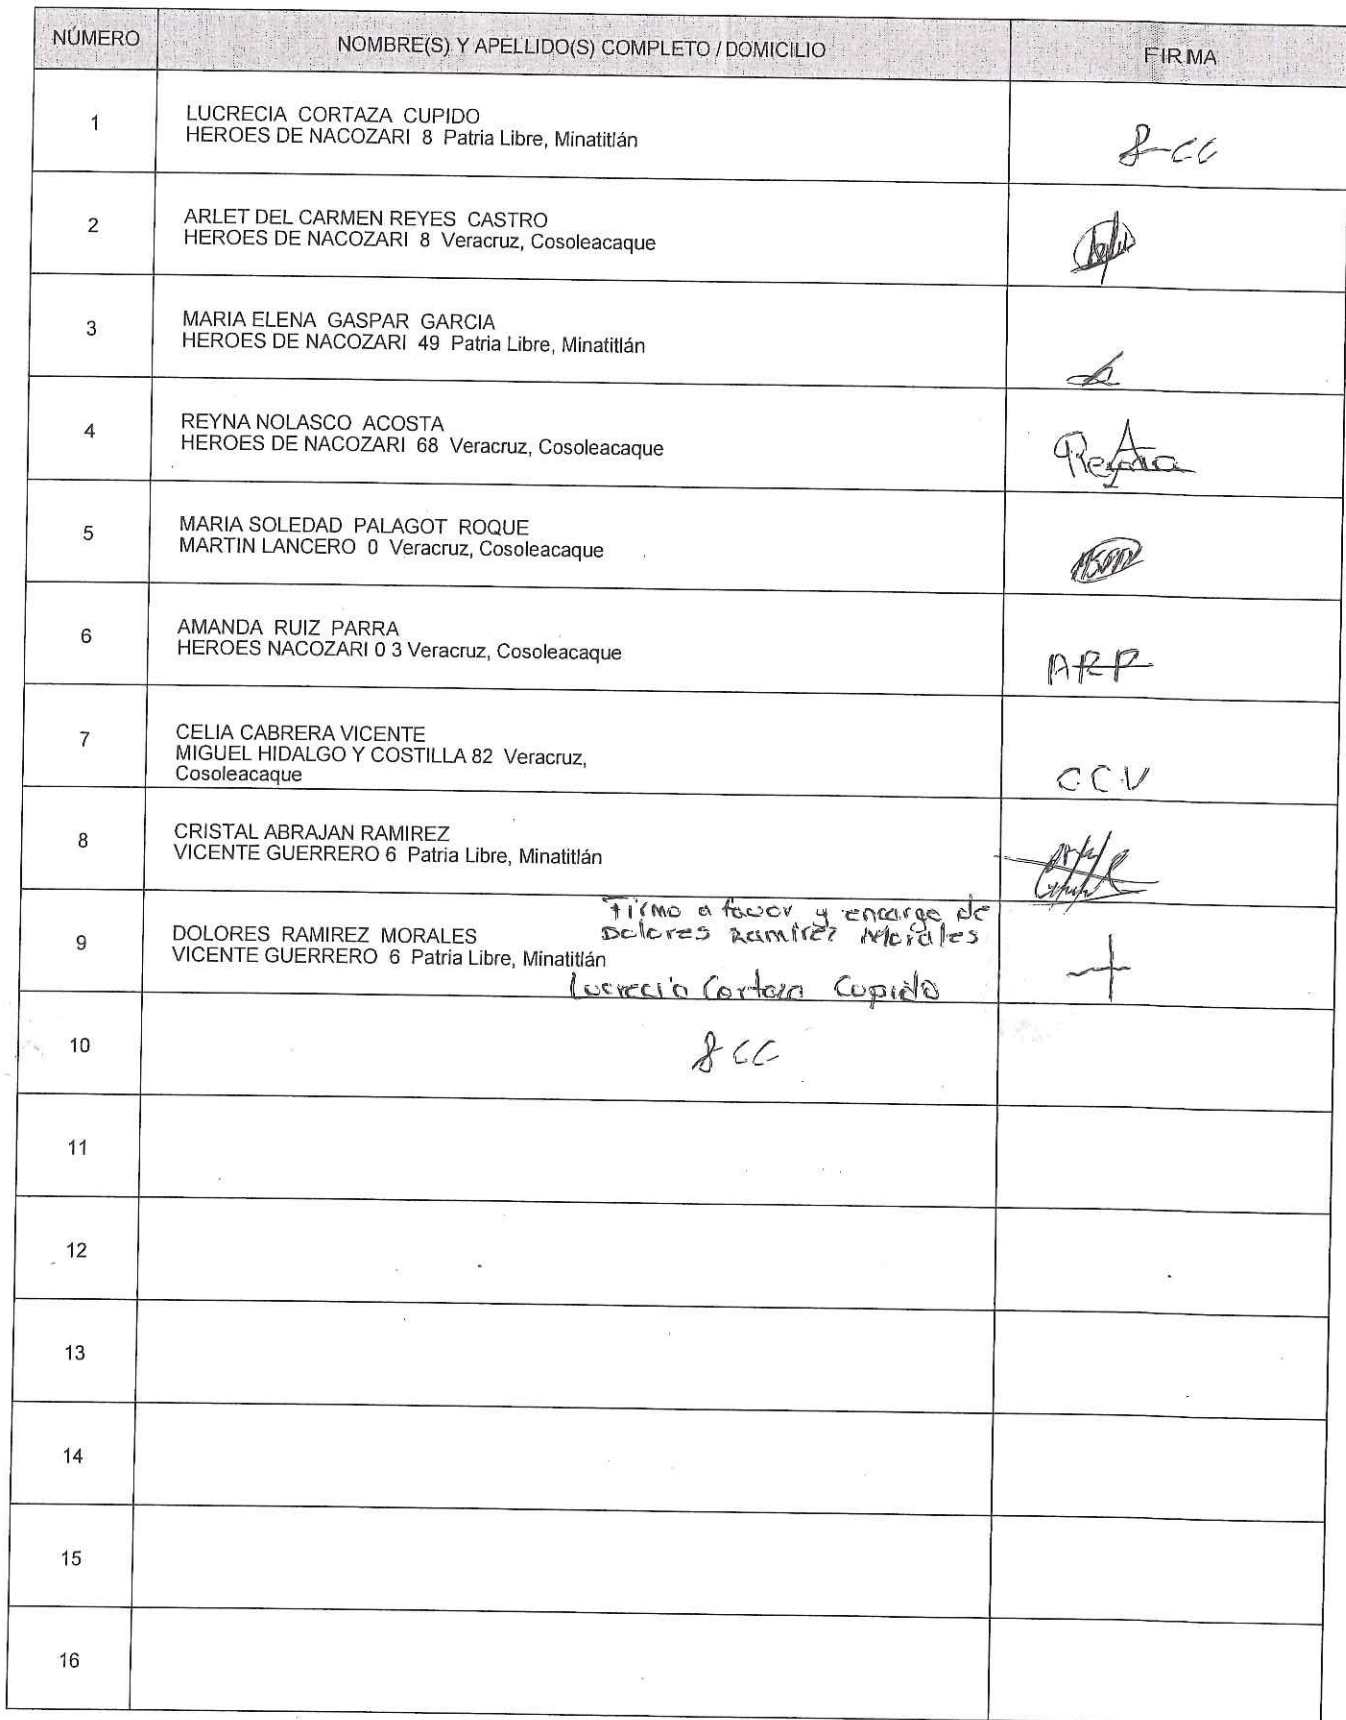 NÚMERO NOMBRE(S) Y APELLIDO(S) COMPLETO / DOMICILIO FIRMA
1 LUCRECIA CORTAZA CUPIDO
HEROES DE NACOZARI 8 Patria Libre, Minatitlán
2 ARLET DEL CARMEN REYES CASTRO
HEROES DE NACOZARI 8 Veracruz, Cosoleacaque
3 MARIA ELENA GASPAR GARCIA
HEROES DE NACOZARI 49 Patria Libre, Minatitlán
4 REYNA NOLASCO ACOSTA
HEROES DE NACOZARI 68 Veracruz, Cosoleacaque
5 MARIA SOLEDAD PALAGOT ROQUE
MARTIN LANCERO 0 Veracruz, Cosoleacaque
6 AMANDA RUIZ PARRA
HEROES NACOZARI 0 3 Veracruz, Cosoleacaque
ARP
7 CELIA CABRERA VICENTE
MIGUEL HIDALGO Y COSTILLA 82 Veracruz,
Cosoleacaque
CCV
8 CRISTAL ABRAJAN RAMIREZ
VICENTE GUERRERO 6 Patria Libre, Minatitlán
Firmo a favor y encargo de
9 DOLORES RAMIREZ MORALES Dolores Ramirez Morales
VICENTE GUERRERO 6 Patria Libre, Minatitlán
Lucrecia Cortaza Cupido
10
11
12
13
14
15
16